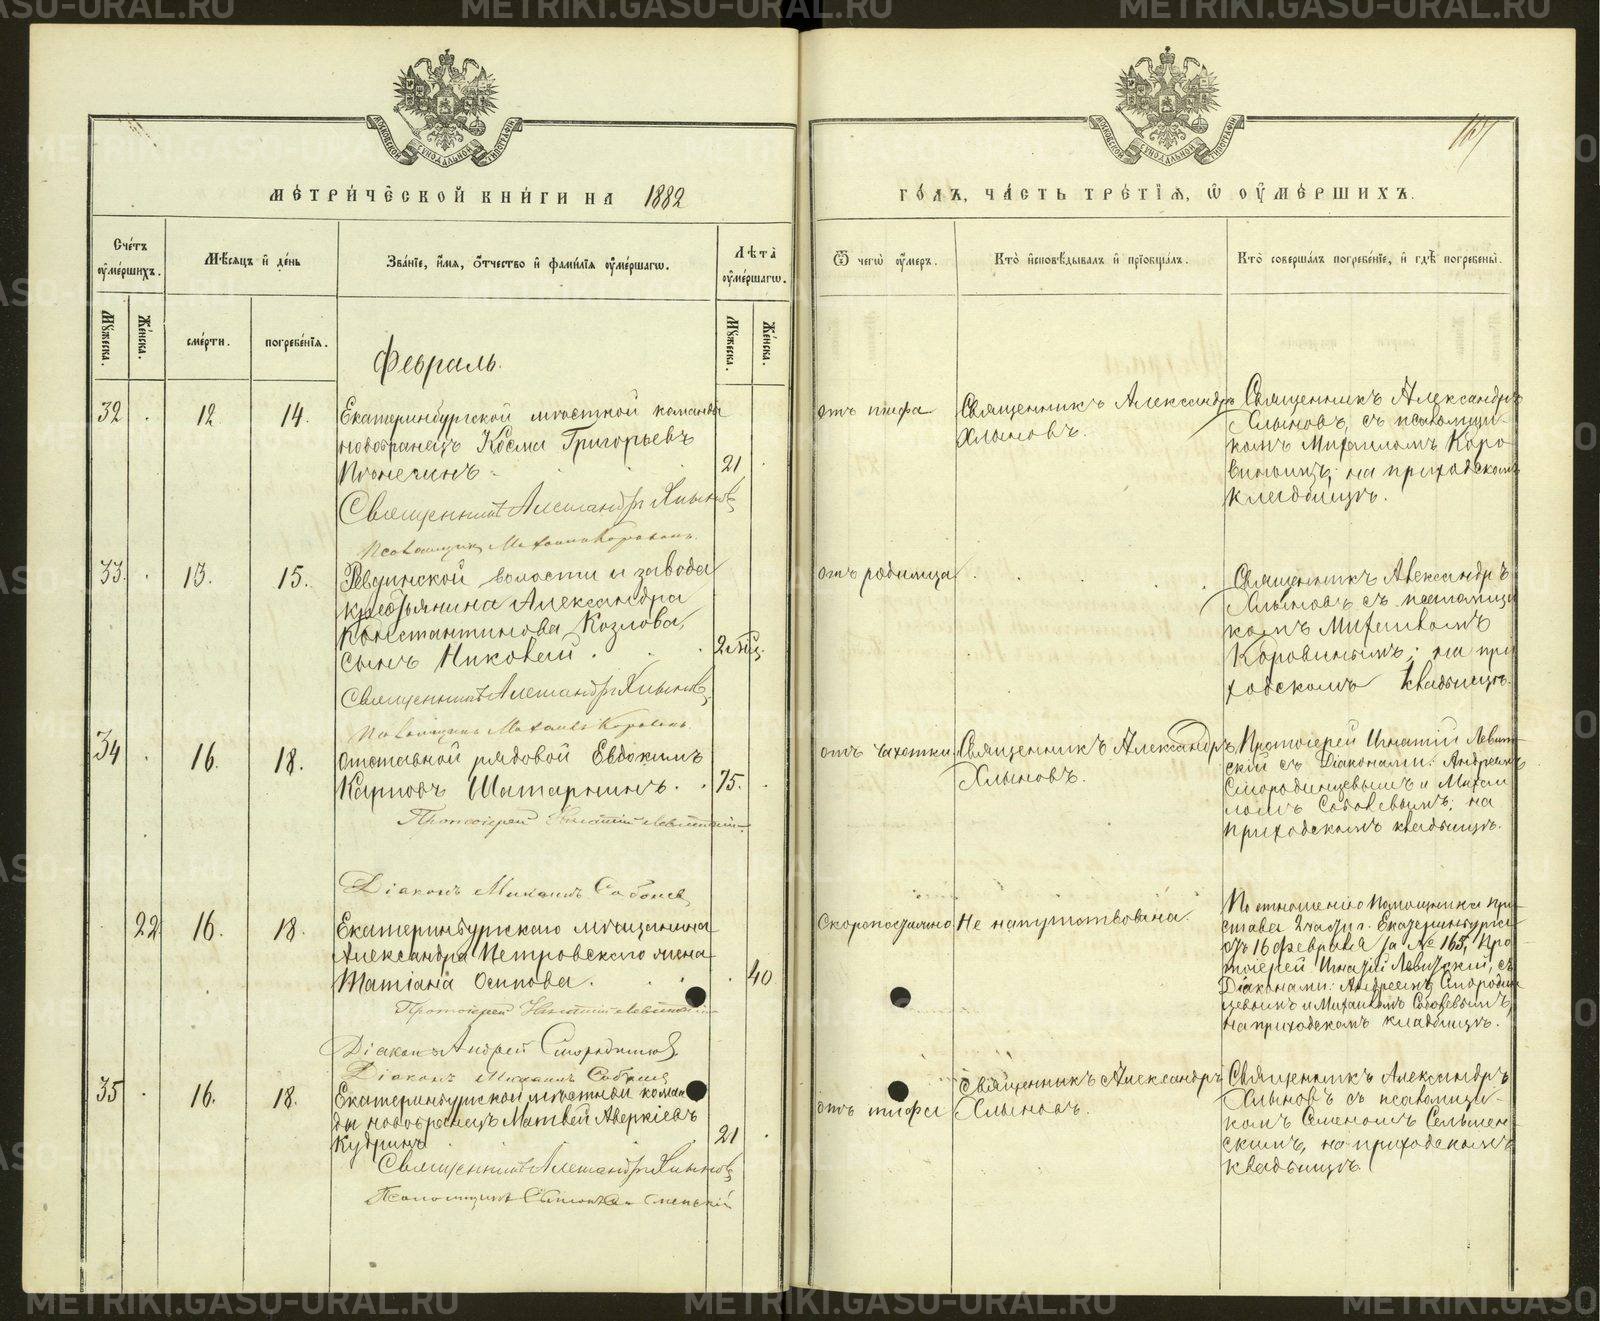 METRIKI.GASU-URAL.RU
МОСКОВСКОЙ СѴНОДАЛЬНОЙ ТИПОГРАФІИ
МОСКОВСКОЙ СѴНОДАЛЬНОЙ ТИПОГРАФІИ
МЕТРИЧЕСКОЙ КНИГИ НА 1882
ГОДЪ, ЧАСТЬ ТРЕТІЯ, Ѡ ОУМЕРШИХЪ.
Счетъ оумершихъ.
Мѣсяцъ и день
Званіе, имя, отчество и фамилія оумершагѡ.
Лѣта оумершагѡ.
Ѿ чегѡ оумеръ.
Кто исповѣдывалъ и пріобщалъ.
Кто совершалъ погребеніе, и гдѣ погребены.
Мужеска.
Женска.
смерти.
погребенія.
Мужеска.
Женска.
Февраль.
32 12 14.
Екатеринбургской мѣстной команды
новобранецъ Косма Григорьевъ
21
Священникъ Александръ Хлыновъ
Псаломщикъ Михаилъ Коровинъ.
отъ тифа
Священникъ Александръ
Хлыновъ.
Священникъ Александръ
Хлыновъ, съ псаломщи-
комъ Михаиломъ Коро-
винымъ; на приходскомъ
кладбищѣ.
33. 13. 15.
Ревдинской волости и завода
крестьянина Александра
Константинова Козлова,
сынъ Николай. 2 мѣс.
Священникъ Александръ Хлыновъ
Псаломщикъ Михаилъ Коровинъ.
отъ родимца
Священникъ Александръ
Хлыновъ съ псаломщи
комъ Михаиломъ
Коровинымъ; на при
ходскомъ кладбищѣ.
34 16. 18.
Отставной рядовой Евдокимъ
Карповъ 75.
Протоіерей Игнатій Левитскій
Діаконъ Михаилъ Соболевъ
отъ чахотки
Священникъ Александръ
Хлыновъ.
Протоіерей Игнатій Левит
скій съ Діаконами: Андреемъ
Смородинцевымъ и Михаи
ломъ Соболевымъ; на
приходскомъ кладбищѣ.
22 16. 18.
Екатеринбургскаго мѣщанина
Александра Петровскаго жена
Татіана Осипова. 40
Протоіерей Игнатій Левитскій
Діаконъ Андрей Смородинцев
Діаконъ Михаилъ Соболев
Скоропостижно
Не напутствована.
По отношенію Помощника при-
става 2 части г. Екатеринбурга
отъ 16 февраля за № 165, Про
тоіерей Игнатій Левитскій, съ
Діаконами: Андреемъ Смородин
цевымъ и Михаиломъ Соболевымъ
на приходскомъ кладбищѣ.
35 16. 18.
Екатеринбургской мѣстной коман
ды новобранецъ Матвей Аверкіевъ
Кудринъ 21
Священникъ Александръ Хлыновъ
Псаломщикъ
отъ тифа
Священникъ Александръ
Хлыновъ.
Священникъ Александръ
Хлыновъ съ псаломщи-
комъ Семеномъ Сельмен-
скимъ, на приходскомъ
кладбищѣ.